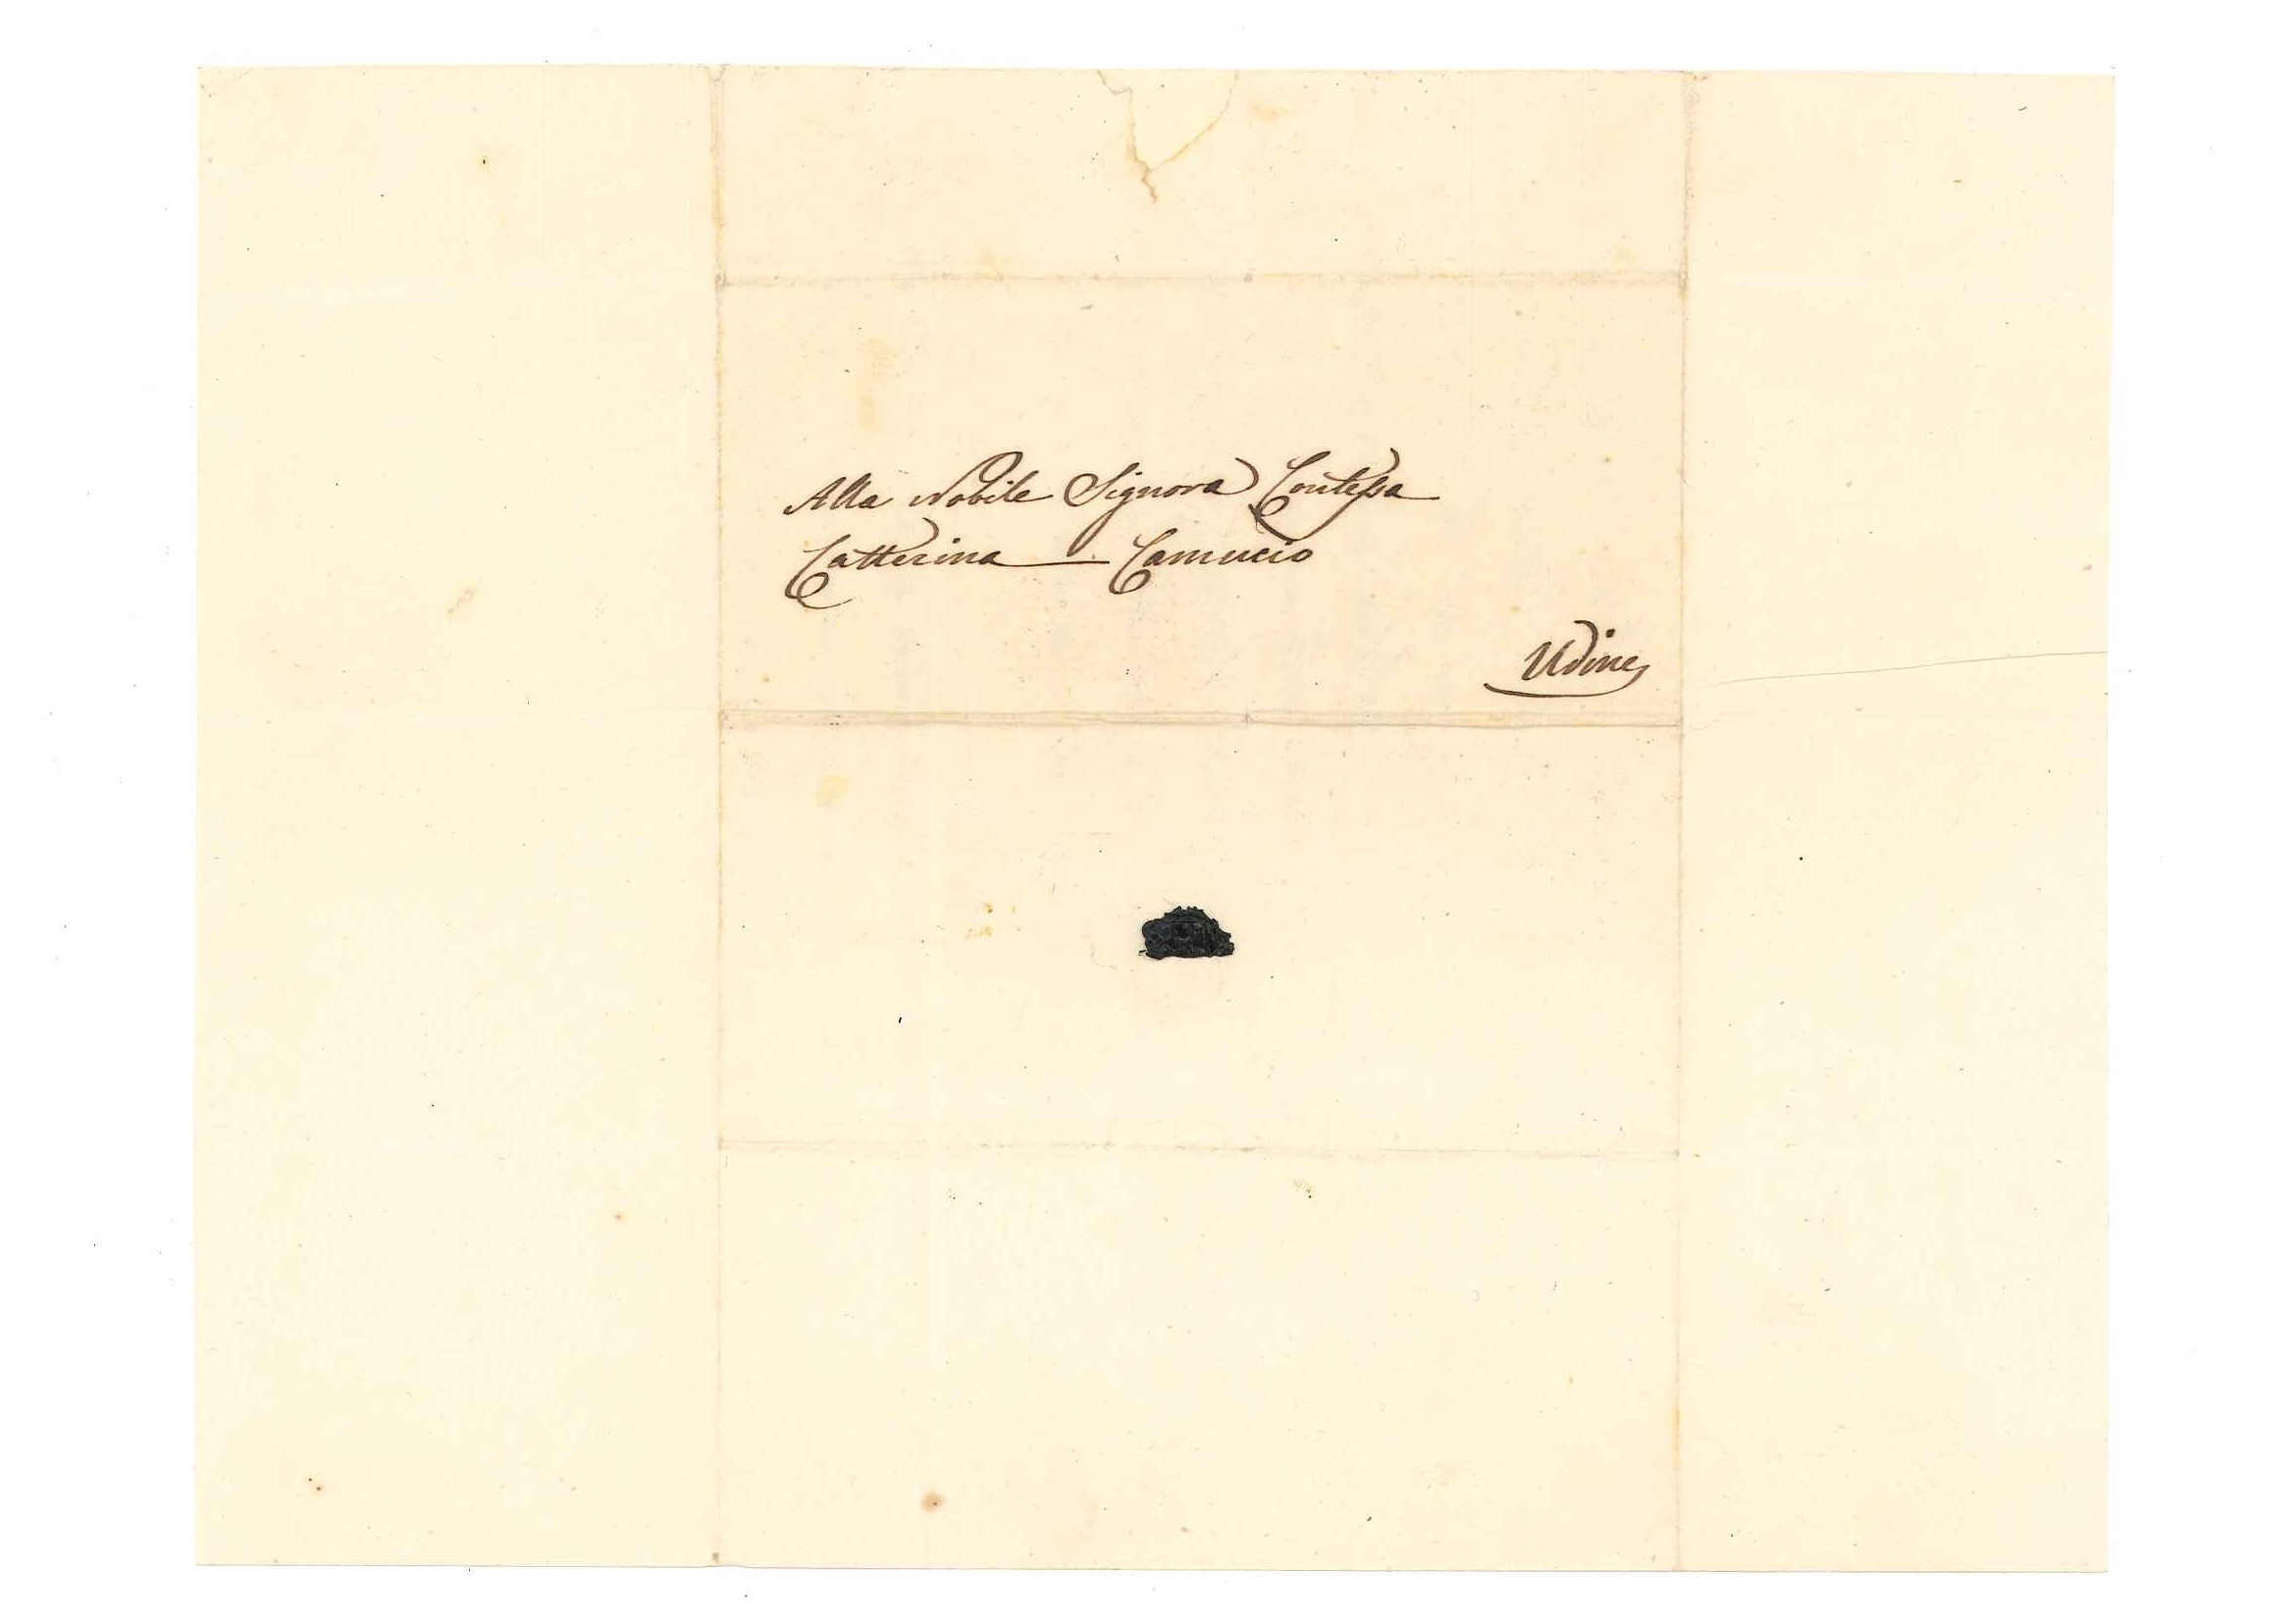 Alla Nobile Signora Contessa
Catterina Camucio
Udine